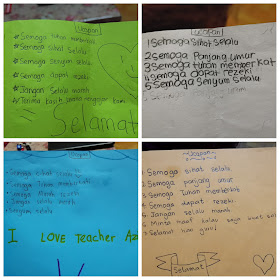 Ucapan
* Semoga tuhan memberkati
* Semoga sihat selalu
* Semoga senyum selalu
* Semoga dapat rezeki
* Jangan Selalu marah
* Terima kasih kerana mengajar kami
Selamat
Ucapan
1 Semoga Sihat Selalu
2 Semoga Panjang umur
3 Semoga tuhan memperkat
4 Semoga dapat rezeki
5 Semoga Senyum Selalu
Ucapan
Semoga sihat
Semoga Tuhan
Semoga dapat rezeki
Jangan selalu marah
senyum selalu
I LOVE Teacher
Ucapan
Semoga sihat selalu
Semoga panjang umur
Semoga tuhan memberkat
Semoga dapat rezeki
Jangan selalu marah
Minta maaf kalau saya buat
Selamat hari guru
Selamat